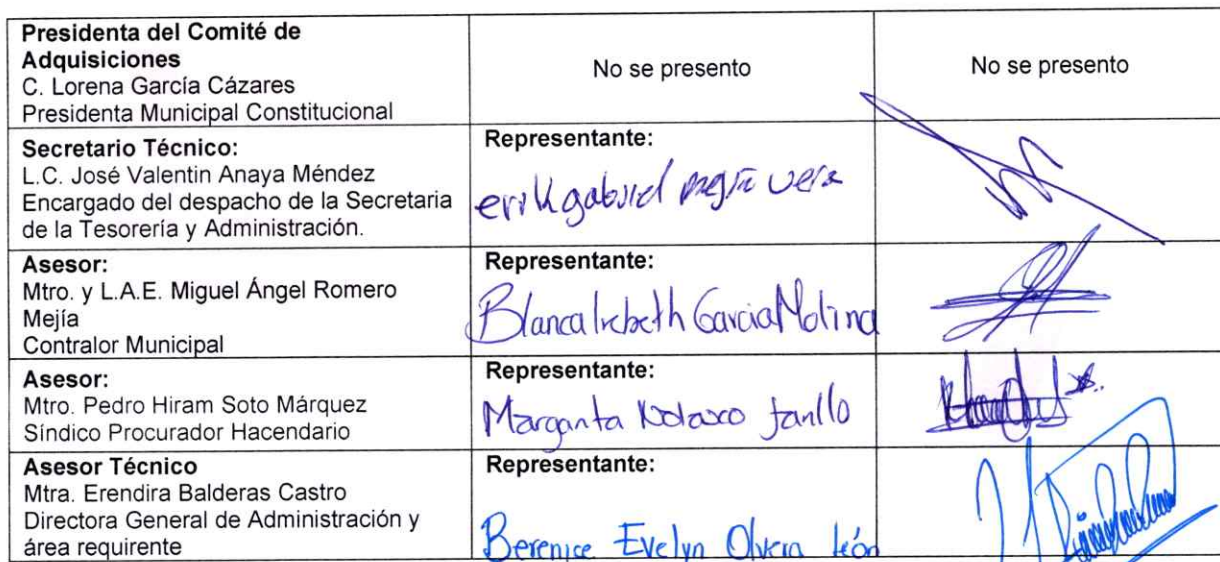 Presidenta del Comité de
Adquisiciones
C. Lorena García Cázares
Presidenta Municipal Constitucional
No se presento
No se presento
Secretario Técnico:
L.C. José Valentin Anaya Méndez
Encargado del despacho de la Secretaria
de la Tesorería y Administración.
Representante:
erik gabriel mejia vera
Asesor:
Mtro. y L.A.E. Miguel Ángel Romero
Mejía
Contralor Municipal
Representante:
Blanca Garcia Molina
Asesor:
Mtro. Pedro Hiram Soto Márquez
Síndico Procurador Hacendario
Representante:
Margarita Nolasco
Asesor Técnico
Mtra. Erendira Balderas Castro
Directora General de Administración y
área requirente
Representante:
Berenice Evelyn Olvera León